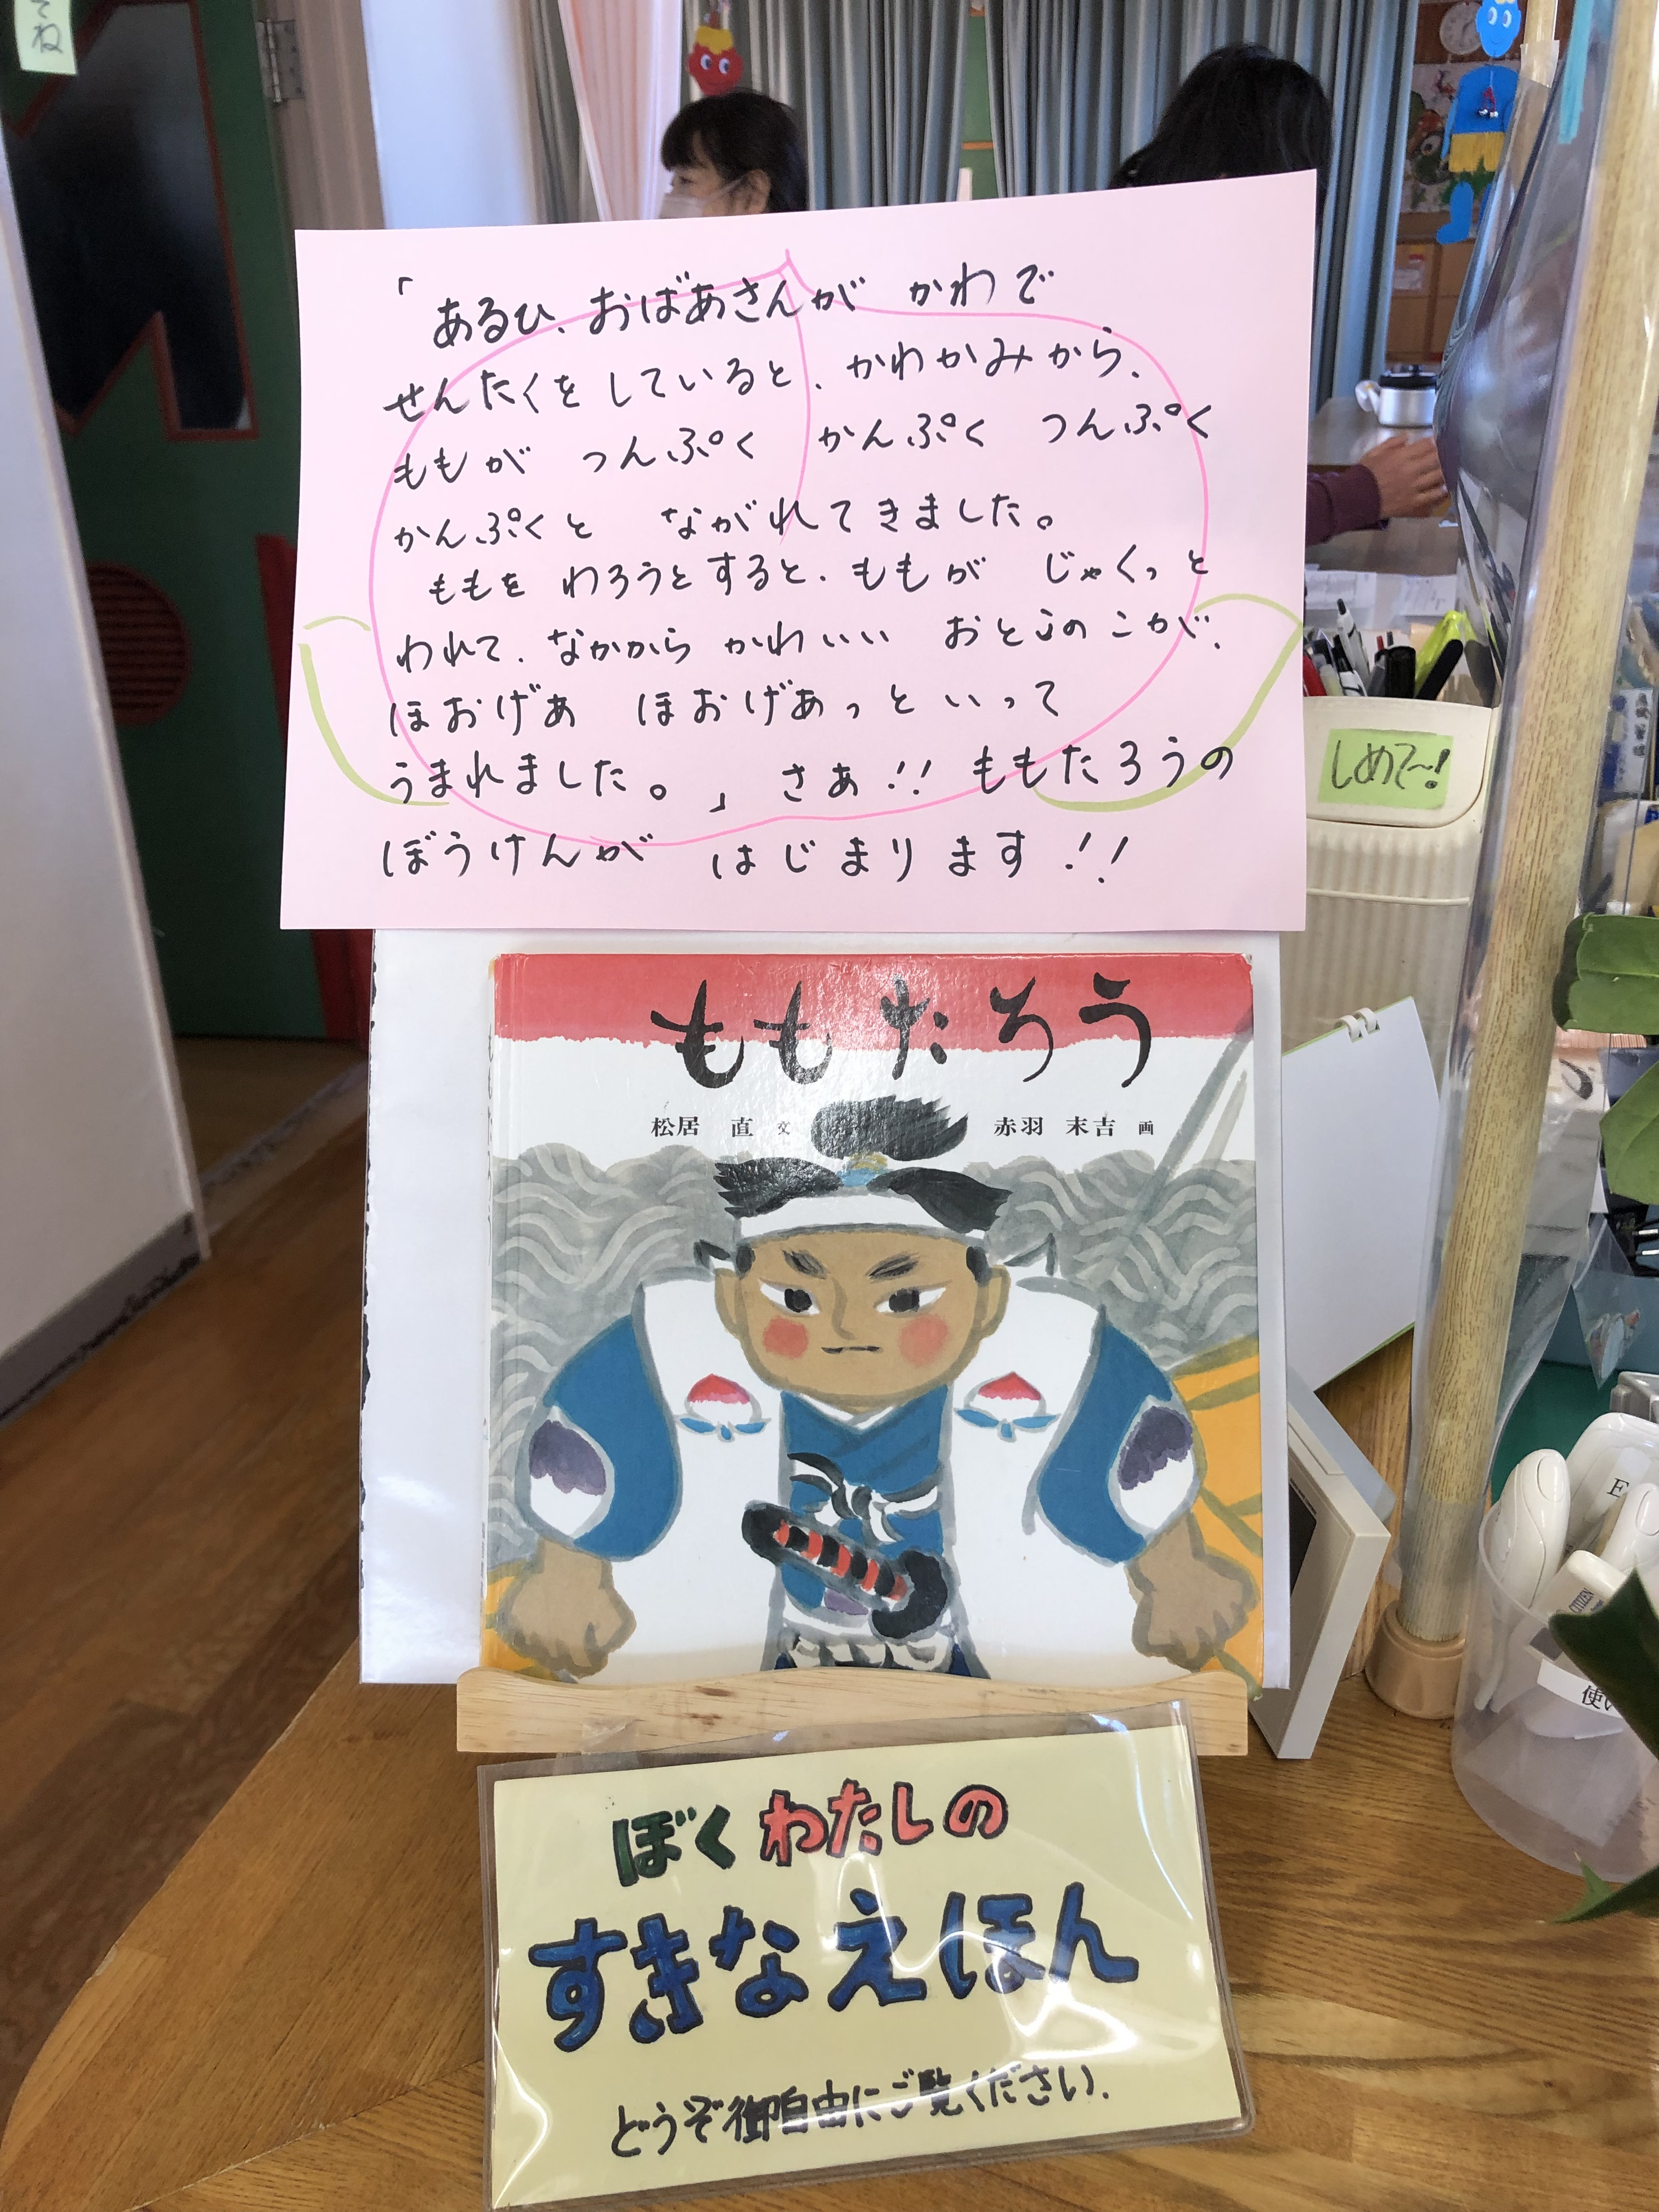 てね
「あるひ、おばあさんが かわで
せんたくを していると、かわかみから、
ももが つんぷく かんぷく つんぷく
かんぷくと ながれてきました。
ももを わろうとすると、ももが じゃくっと
われて、なかから かわいい おとこの こが、
ほおげあ ほおげあっと いって
うまれました。」さぁ!! ももたろうの
ぼうけんが はじまります!!
しめて〜!
ももたろう
松居 直 文 赤羽 末吉 画
CITIZEN
使い
ぼく わたしの
すきな えほん
どうぞ御自由にご覧ください.